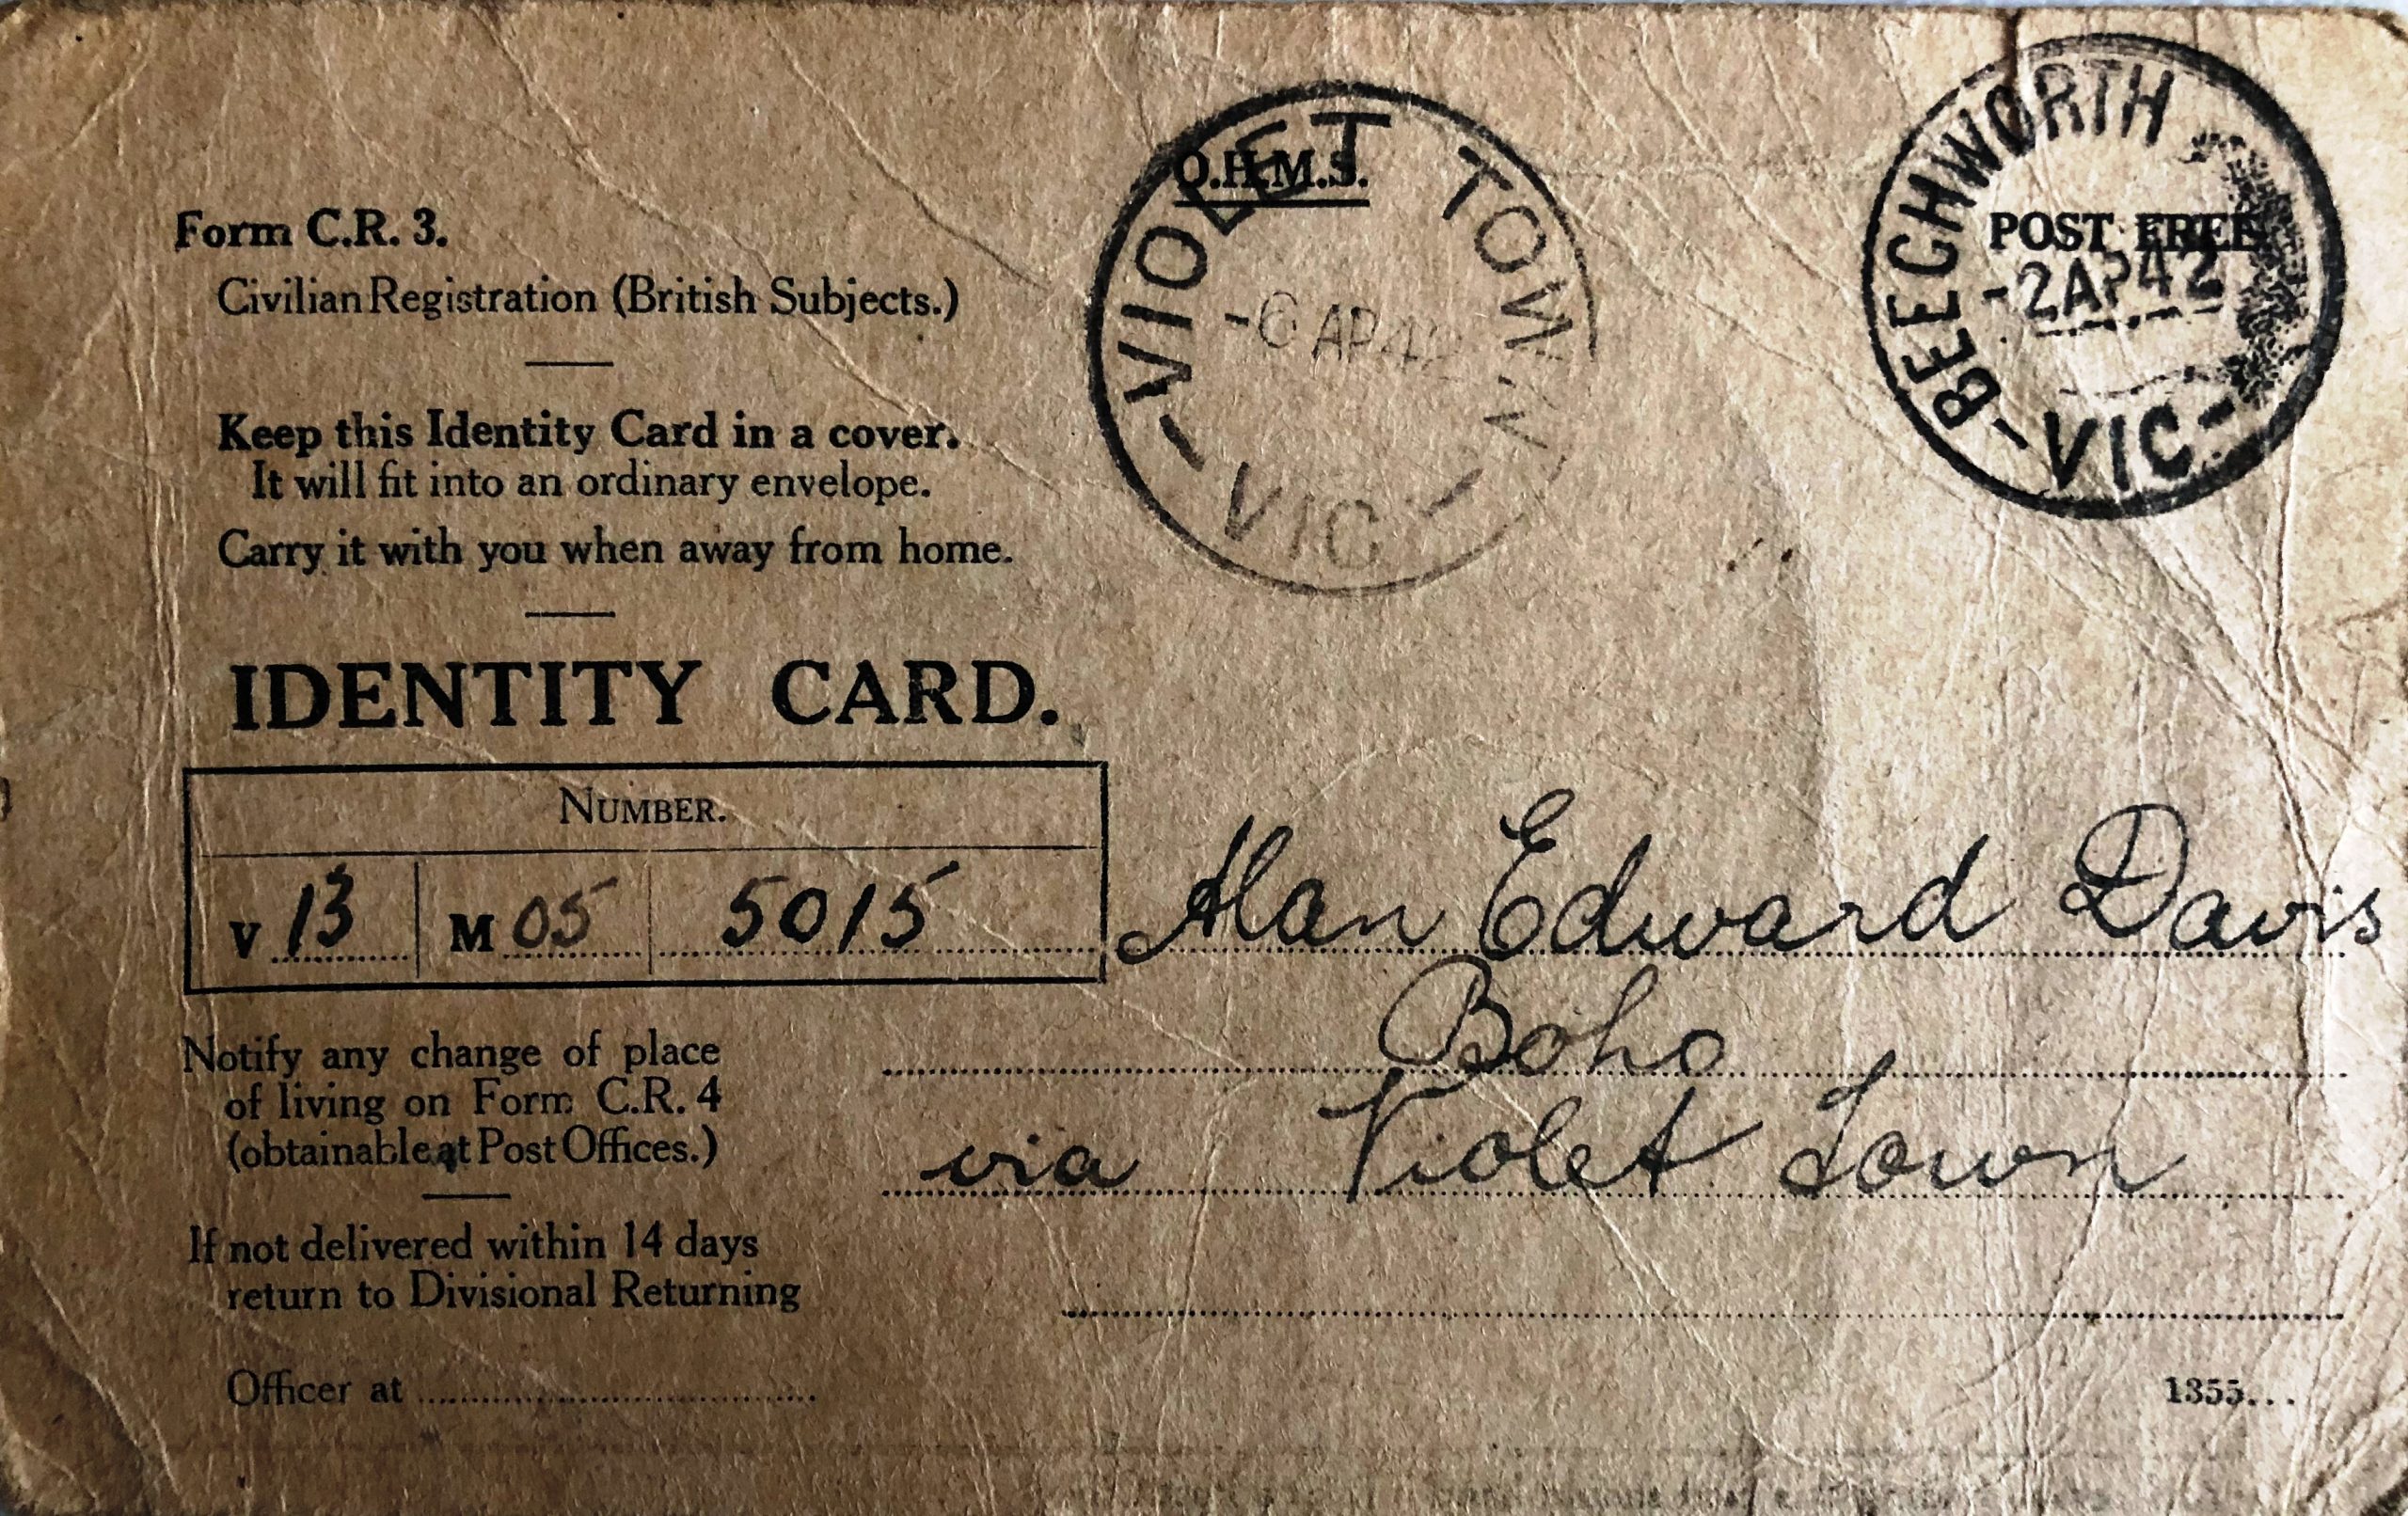 O.H.M.S.
POST FREE
VIOLET TOWN
-6 AP 42
- VIC -
BEECHWORTH
-2 AP 42
- VIC -
Form C.R. 3.
Civilian Registration (British Subjects.)
Keep this Identity Card in a cover.
It will fit into an ordinary envelope.
Carry it with you when away from home.
IDENTITY CARD.
NUMBER.
V 13 M 05 5015
Alan Edward Davis
Boho
via Violet Town
Notify any change of place
of living on Form C.R. 4
(obtainable at Post Offices.)
If not delivered within 14 days
return to Divisional Returning
Officer at
1355...